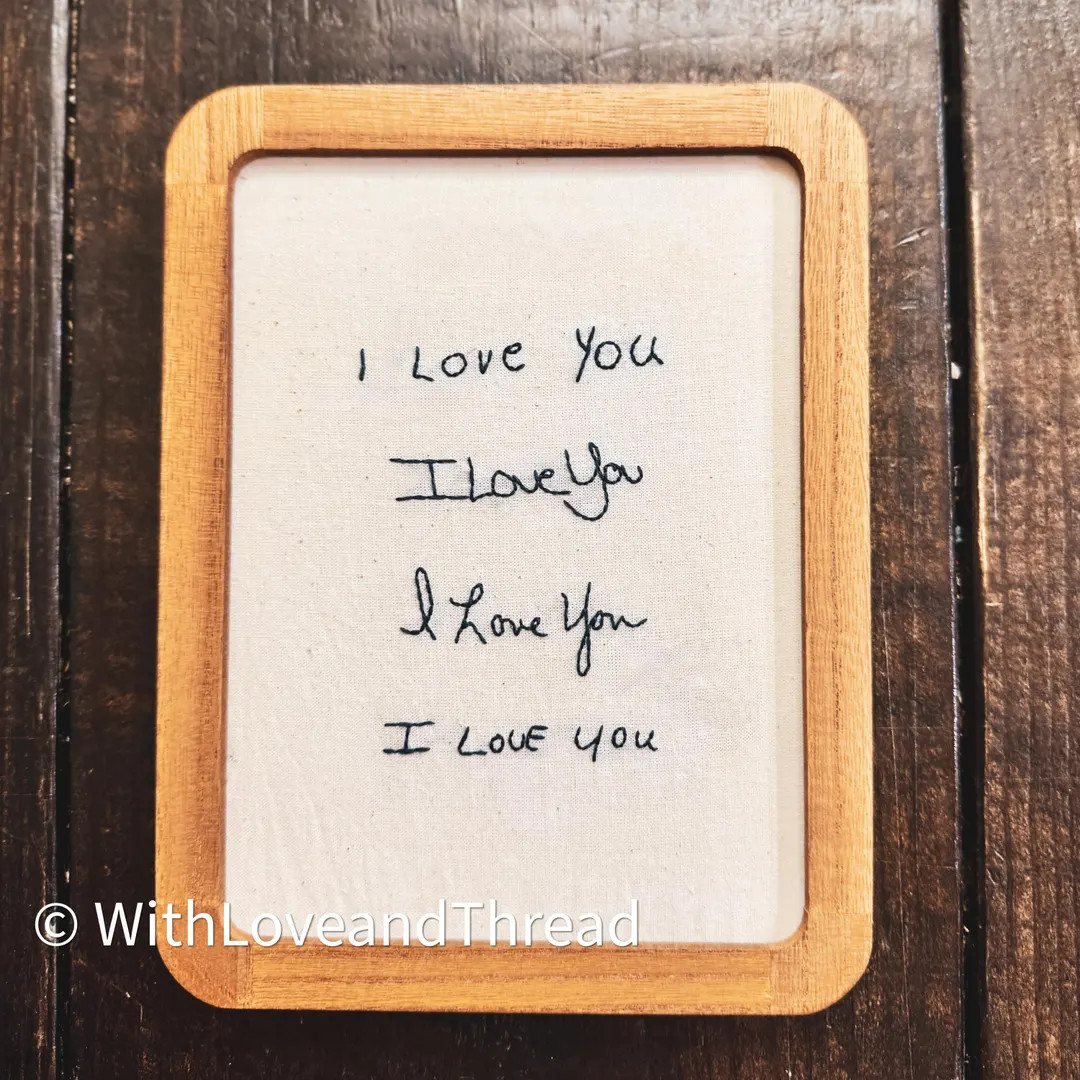 I LOVe YOU
I Love You
I Love You
I LOVE YOU
© WithLoveandThread